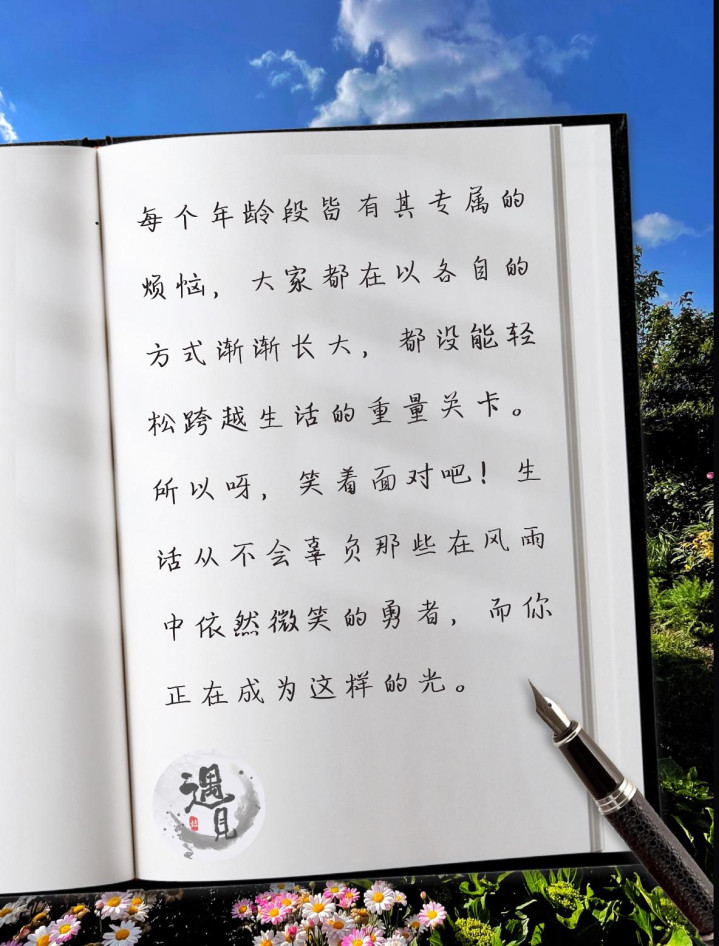 每个年龄段皆有其专属的
烦恼，大家都在以各自的
方式渐渐长大，都没能轻
松跨越生活的重量关卡。
所以呀，笑着面对吧！生
话从不会辜负那些在风雨
中依然微笑的勇者，而你
正在成为这样的光。
遇見